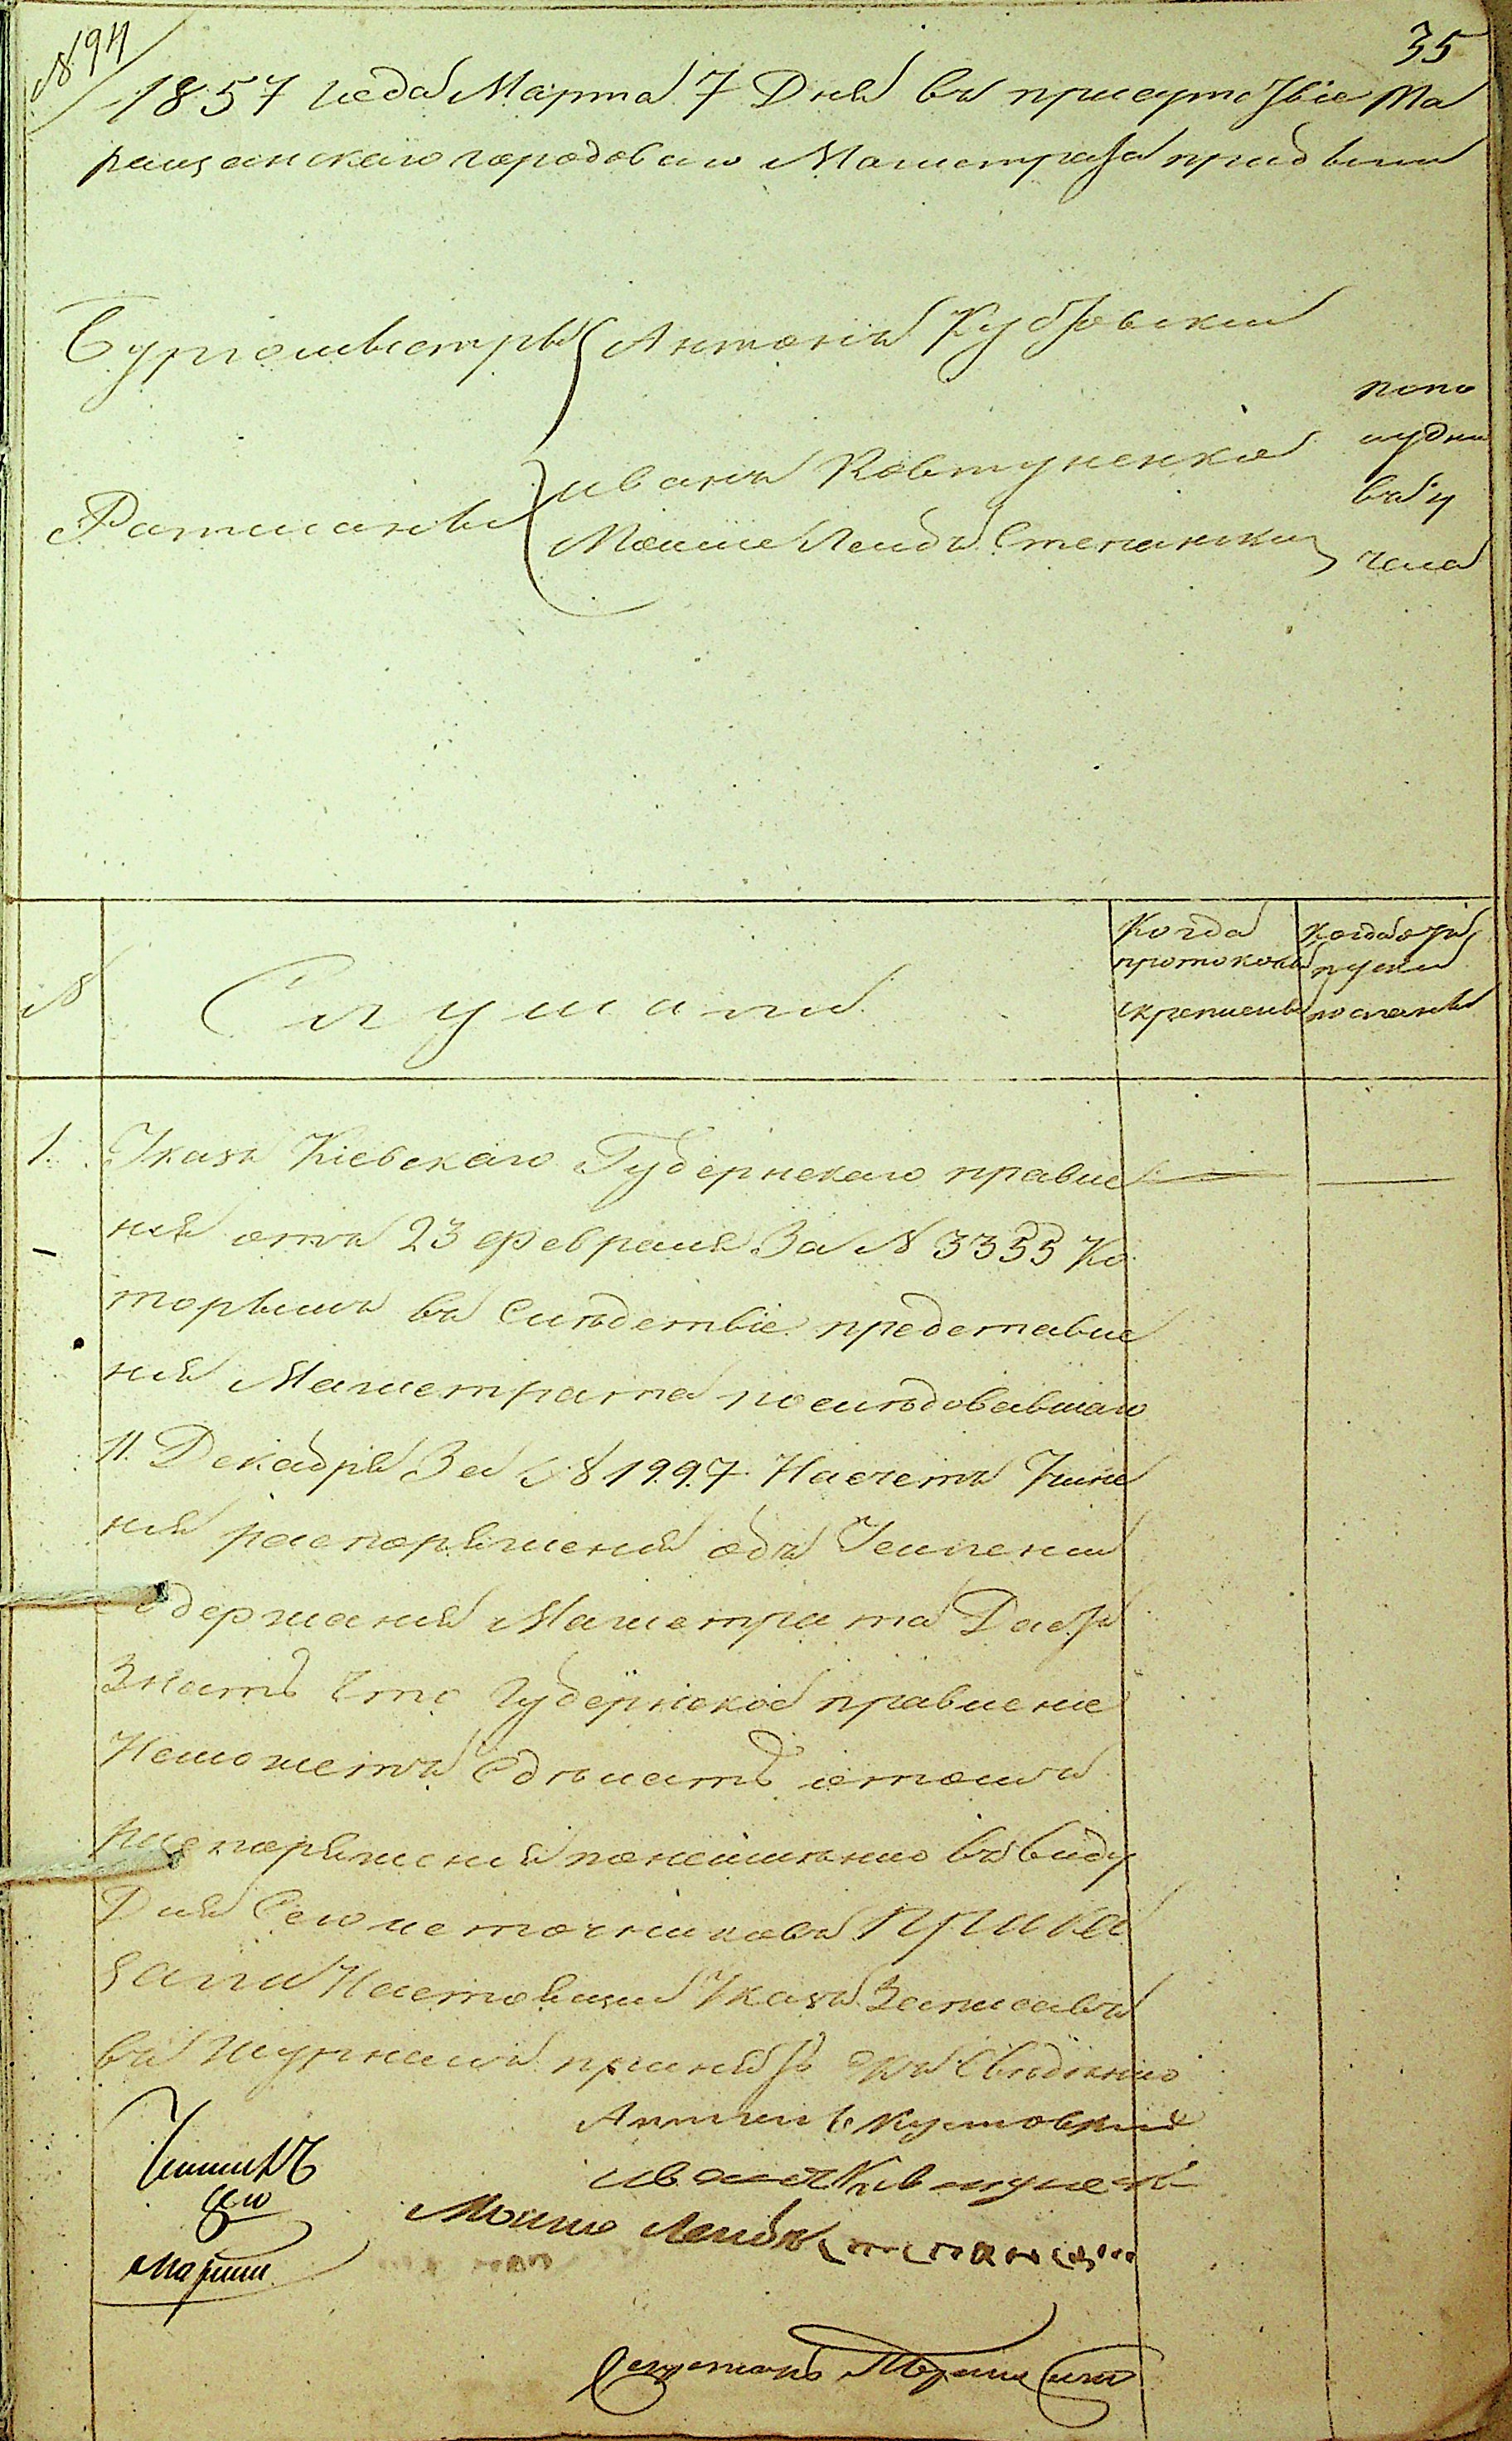 № 94
35
1857 года Марта 7 Дня въ присутствіе Та
ращанскаго городоваго Магистрата прибыли
Бургомистръ Антонъ Кустовскій
Ратманы
Иванъ Ковтуненко
Мошко Лейба Степанскій
попо
лудни
въ
часа
№
Слушали
Когда
протоколы
скреплены
Когда от
пуски
посланы
1. Указъ Кіевскаго Губернскаго правле
нія отъ 23 Февраля За № 3355 Ко
торымъ въ Слѣдствіе представле
нія Магистрата послѣдовавшаго
11 Декабря За № 1997 Насчетъ Учине
нія распоряженія объ Усиленіи
Содержанія Магистрата Даетъ
Знать Что Губернское правленіе
Неможетъ Сдѣлать
распоряженія понеимѣнію въ виду
Для Сего источниковъ Прика
зали Настоящій Указъ Записавъ
въ Журналъ принять Къ Свѣдѣнію
Антонъ Кустовскій
Иванъ Ковтуненко
Мошко Лейба Степанскій
Секретарь
7
Марта